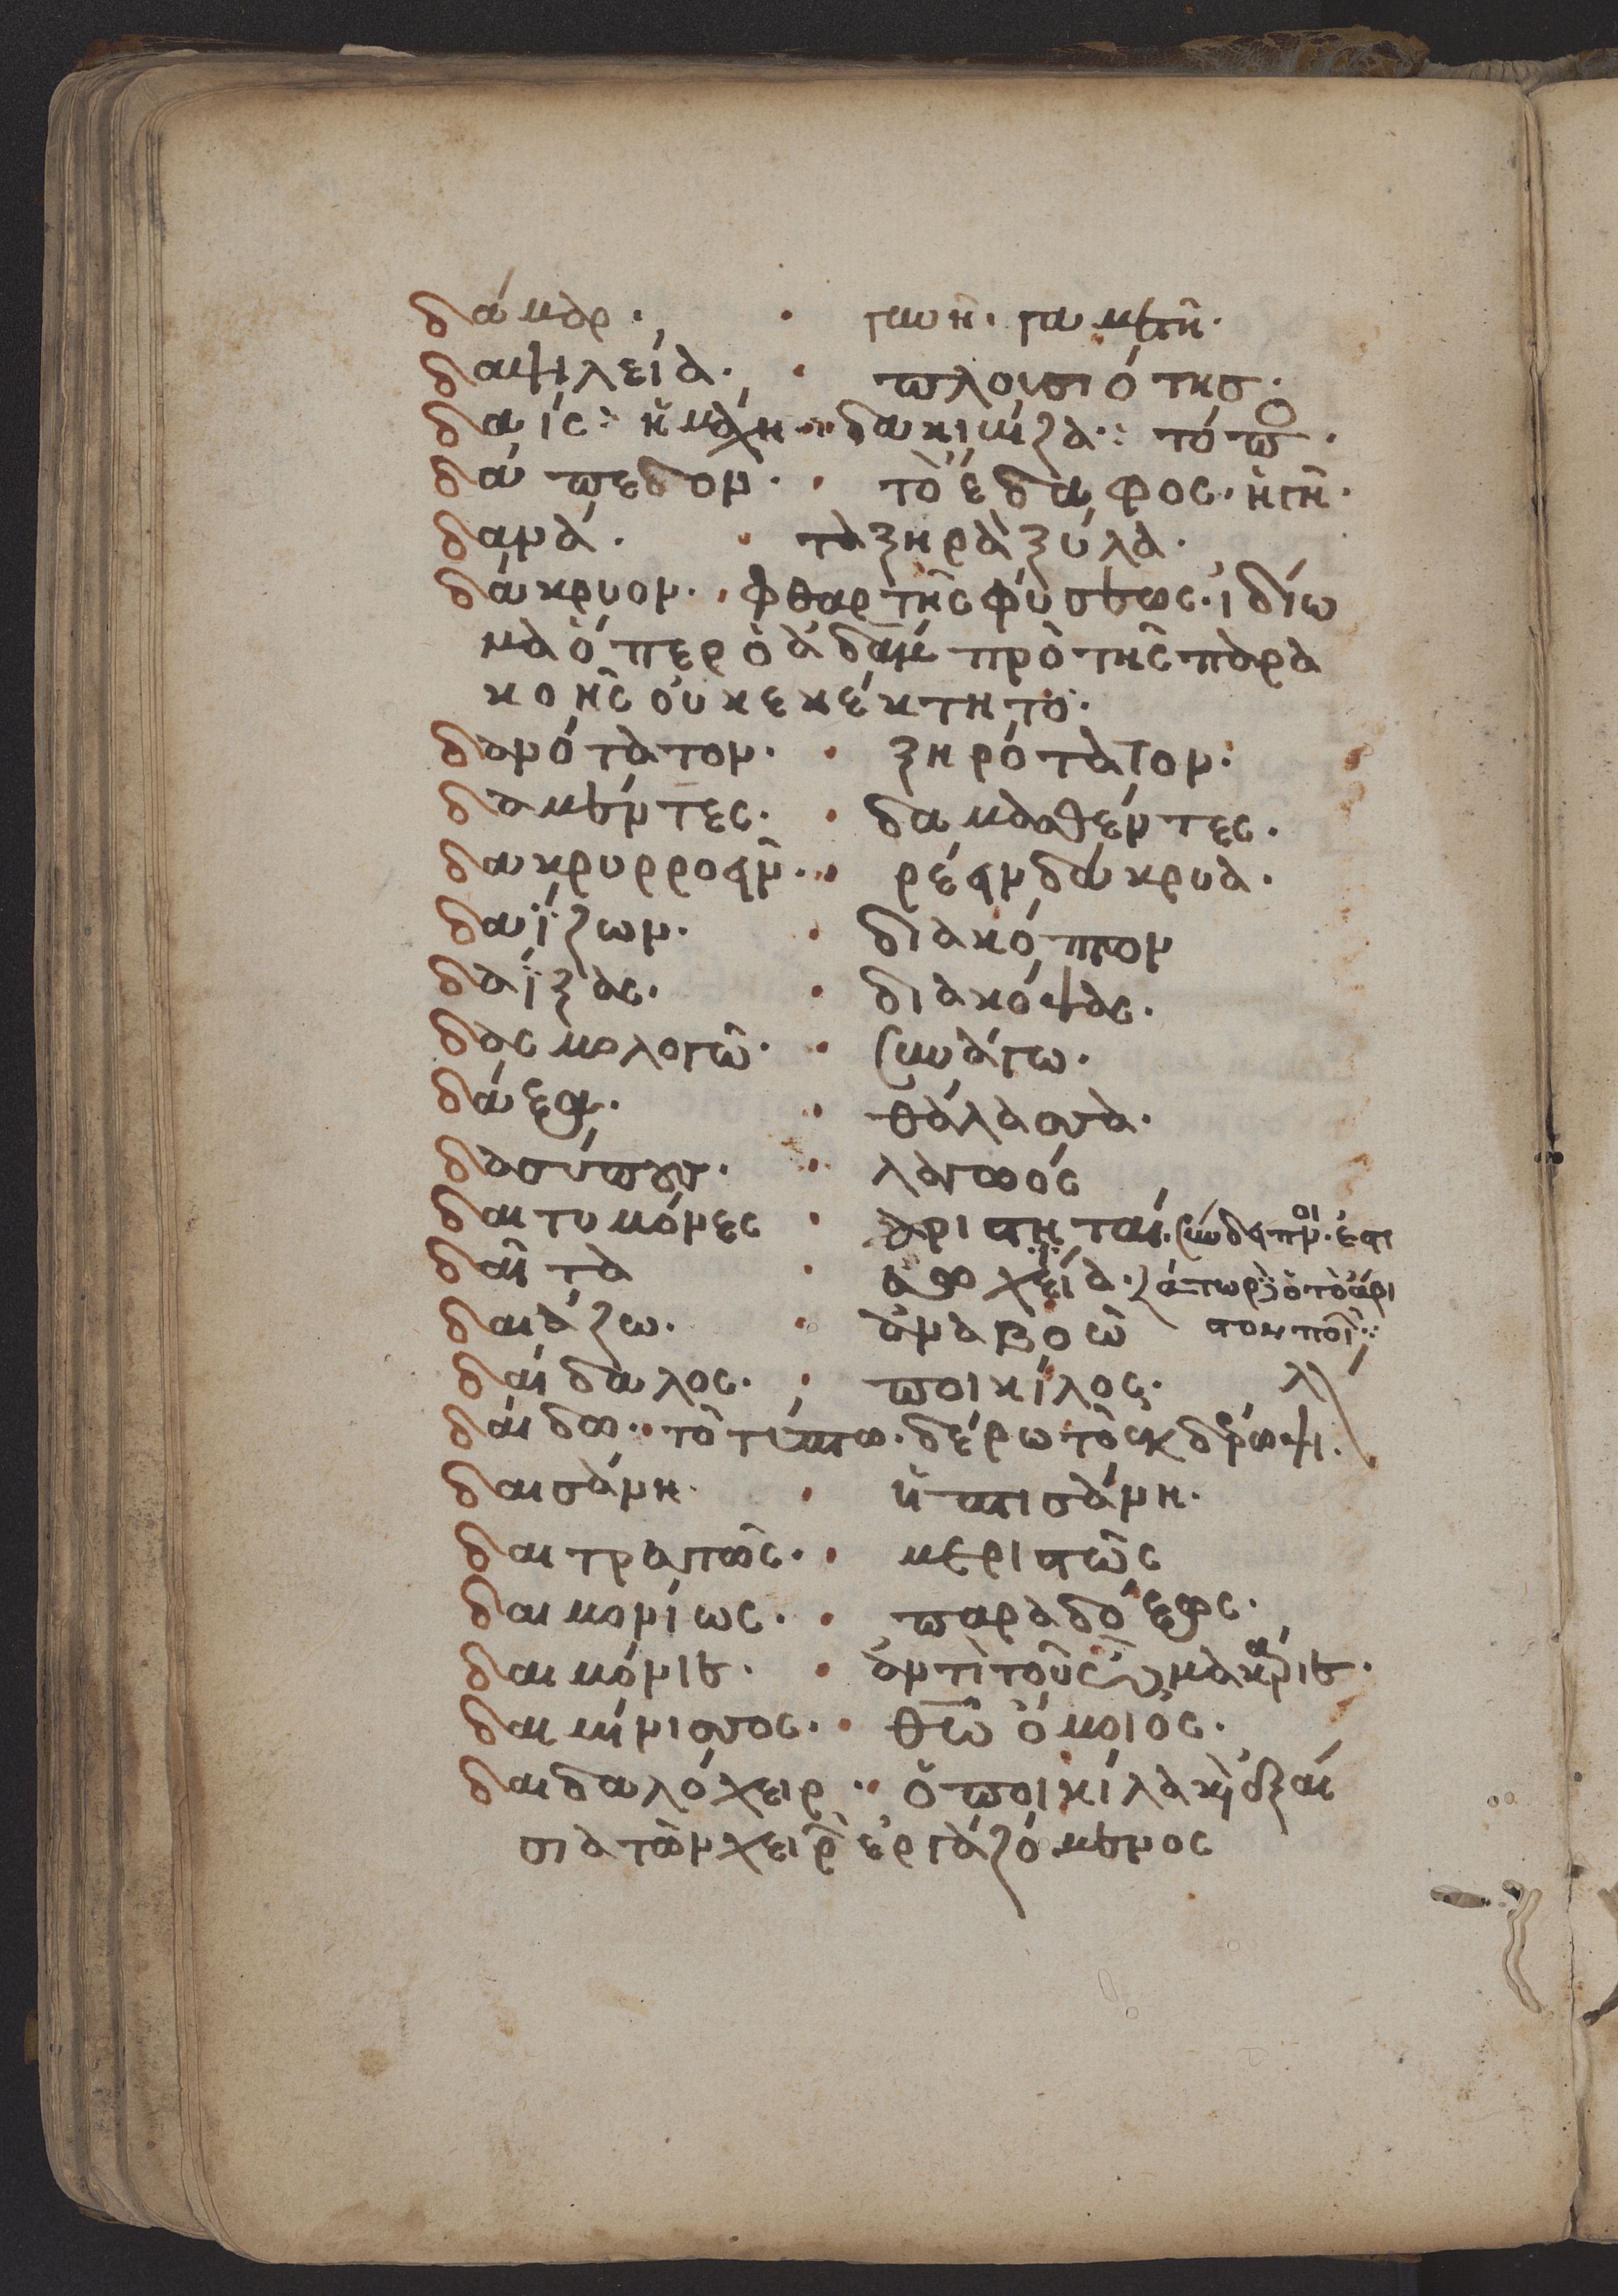 δάμαρ. γυνὴ. γαμετῆ.
δαψιλεία. πλουσιότης.
δαΐς: ἡ μάχη. δακιμίζα: τὸ
δάπεδον. τὸ ἔδαφος. ἡ γῆ.
δανά. τὰ ξηρὰ ξύλα.
δάκρυον. φθαρτῆς φύσεως. ἰδίω
μα ὅπερ ὁ ἀδὰμ πρὸ τῆς παρα
κοῆς οὐκ ἐκέκτητο.
δανότατον. ξηρότατον:
δαμέντες. δαμασθέντες.
δακρυρροεῖν. ῥέειν δάκρυα.
δαΐζων. διακόπτον
δαΐξας. διακόψας.
δασμολογῶ. συνάγω.
θάλασσα.
δασύπους. λαγωός
δαιτυμόνες ἀρισηταί.
δαῖτα εὐωχεία.
δαιάζω. ἀναβοῶ
δαίδαλος. ποικίλος.
δαίδω. τὸ τύπτω. δέρω τὸ ἐκδέρω
δαισάνη. ἡ πτισάνη.
δαιτραπῶς. μεριστῶς
δαιμονίως. παραδόξως.
δαιμόνιε. ἀντὶ τοῦ μακάριε.
δαιμόνιος. θῶ ὅμοιος.
δαιδαλόχειρ. ὁ ποικίλα
σια τῶν χειρ ἐργαζόμενος